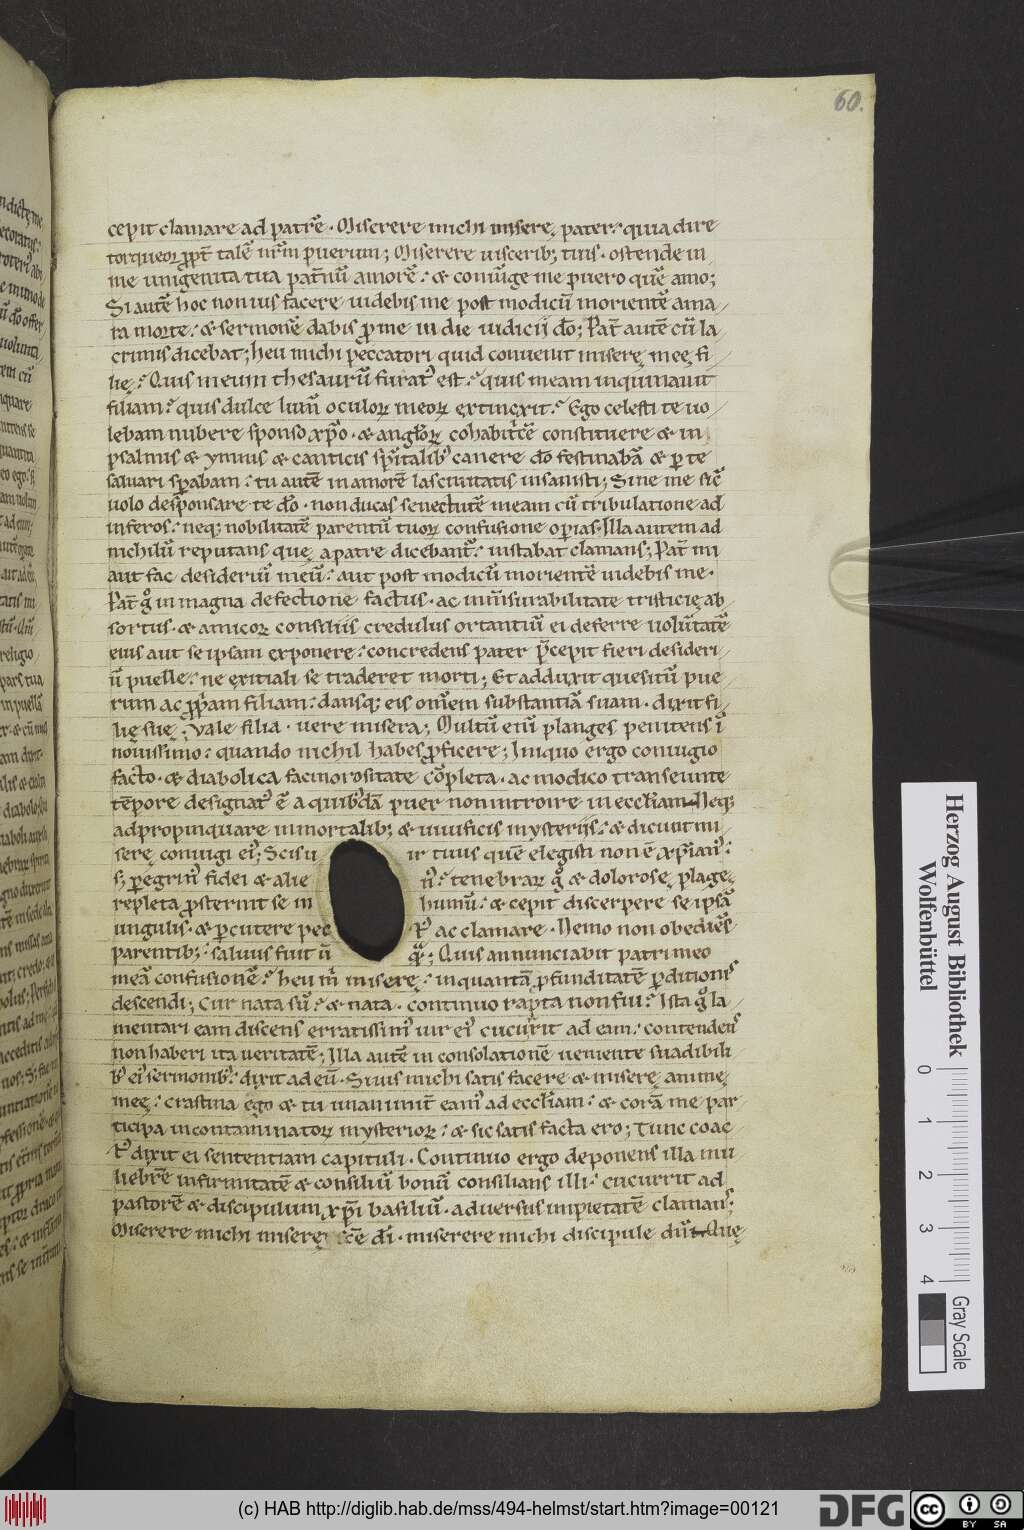 60.
cepit clamare ad patrē · Miserere michi misere, pater · quia dire
torqueor ꝓpt̄ talē nr̄m puerum ; Miserere uiscerib; tuis · ostende in
me unigenita tua pat̄nū amorē · & coniūge me puero quē amo ;
Si autē hoc non uis facere uidebis me post modicū morientē ama
ra morte · & sermonē dabis ꝓ me in die iudicij dō ; Pat̄ autē cū la
crimis dicebat ; heu michi peccatori quid conuenit miserę meę fi
lię · Quis meum thesaurū furat᷒ est · quis meam inquinauit
filiam · quis dulce lum̄ oculoꝝ meoꝝ extinxit · Ego celesti te uo
lebam nubere sponso xp̄o · & angloꝝ cohabitr̄cē constituere & in
psalmis & ymnis & canticis spītalib᷒ canere dō festinabā & p te
saluari spabam · tu autē in amorē lasciuitatis insanisti ; Sine me sic̄
uolo desponsare te dō · non ducas senectutē meam cū tribulatione ad
inferos · neq; nobilitatē parentū tuoꝝ confusione opias · Illa autem ad
nichilū reputans que, a patre dicebant᷒ · instabat clamans ; Pat̄ mi
aut fac desideriū meū · aut post modicū morientē uidebis me ·
Pat̄ gͦ in magna defectione factus · ac inm̄surabilitate tristicię ab
sortus · & amicoꝝ consiliis credulus ortantiū ei deferre uolūtatē
eius aut se ipsam exponere · concredens pater p̄cepit fieri desideri
ū puelle · ne exitiali se traderet morti ; Et adduxit quesitū pue
rum ac ꝓp̄am filiam · dansq; eis om̄em substantiā suam · dixit fi
lię suę ; Vale filia · uere misera ; Multū eni᷒ planges penitens ī
nouissimo · quando nichil habes ꝓficere ; Iniquo ergo coniugio
facto · & diabolica facinorositate cōpleta · ac modico transeunte
tēpore designat᷒ ē a quib᷒dā puer non introire in eccl̄iam · Neq;
adpropinquare inmortalib; & uiuificis mysteriis · & dicunt mi
serę coniugi ei᷒ ; Scis ir tuus quē elegisti non ē xp̄ian᷒ ·
s; peregrin᷒ fidei & alie n᷒ · tenebraꝝ gͦ & dolorose, plage,
repleta ꝓsternit se in humū · & cepit discerpere se ipsā
ungulis · & pcutere pec t᷒ ac clamare · Nemo non obediēs
parentib; · saluus fiuit ; Quis annunciabit patri meo
meā confusionē · heu m̄ miserę · in quantā ꝓfunditatē pditionis
descendi ; Cur nata sū · & nata · continuo rapta non fui · Ista gͦ la
mentari eam discens erratissim᷒ uir ei᷒ cucurrit ad eam · contendens
non haberi ita ueritatē ; Illa autē in consolationē ueniente suadibili
b᷒ ei᷒ sermonib᷒ · dixit ad eū · Si uis michi satis facere & miserę animę
meę · crastina ego & tu unanimit̄ eam᷒ ad eccl̄iam · & corā me par
ticipa incontaminatoꝝ mysterioꝝ · & sic satis facta ero ; Tunc coac
t᷒ dixit ei sententiam capituli · Continuo ergo deponens illa mu
liebrē infirmitatē & consiliū bonū consilians illi · cucurrit ad
pastorē & discipulum xp̄i basiliū · aduersus impietatē clamans ;
Miserere michi miserę scē dī · miserere michi discipule dn̄i · Quę
Herzog August Bibliothek
Wolfenbüttel
0 1 2 3 4
Gray Scale
(c) HAB http://diglib.hab.de/mss/494-helmst/start.htm?image=00121
DFG
cc BY SA